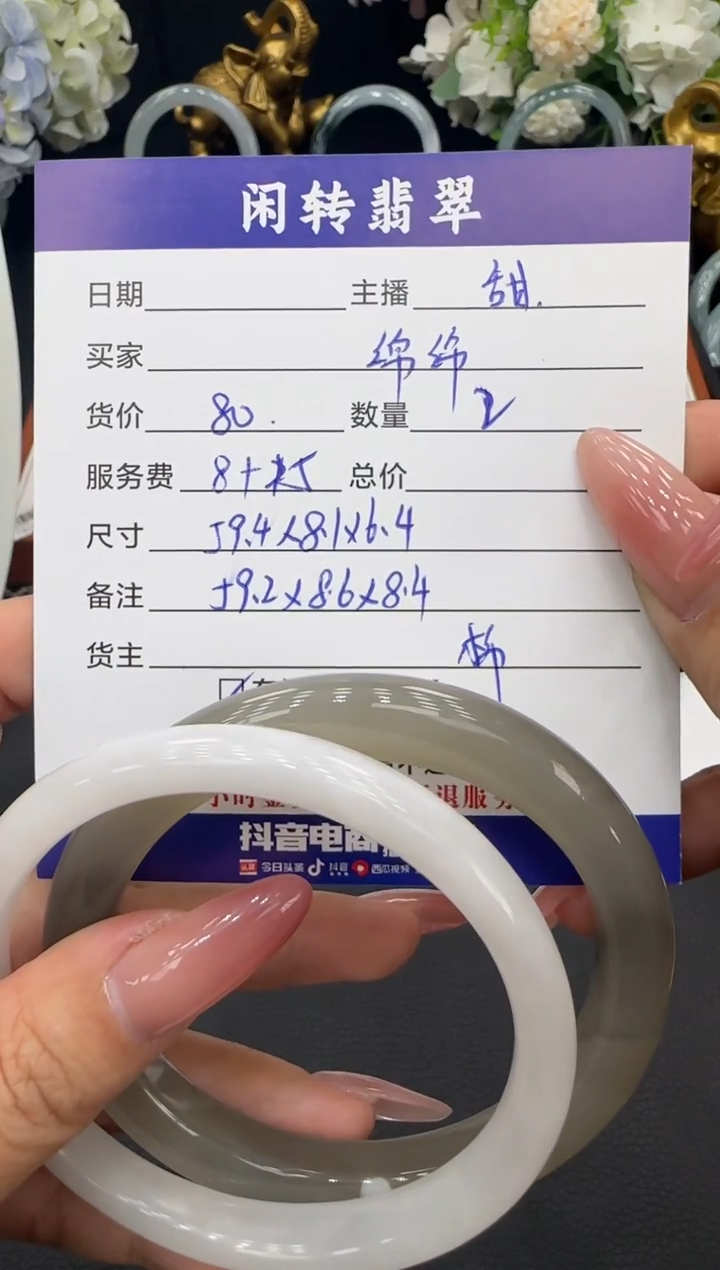 闲转翡翠
日期 主播 甜.
买家 绵绵
货价 80. 数量 2
服务费 8+灯 总价
尺寸 59.4×8.1×6.4
备注 59.2×8.6×8.4
货主
小时 退服务
抖音电商
头条 今日头条 抖音 西瓜视频